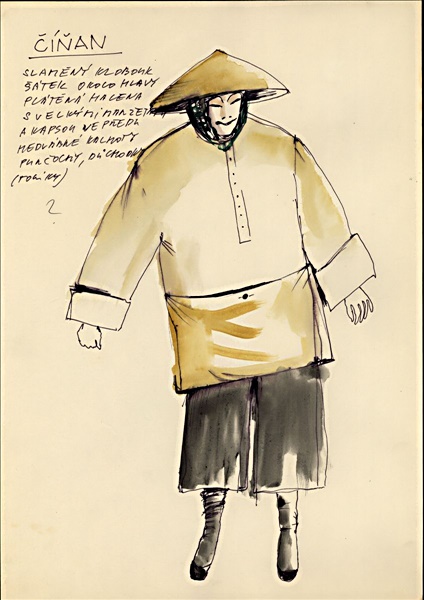 ČÍŇAN
SLAMĚNÝ KLOBOUK
ŠÁTEK OKOLO HLAVY
PLÁTĚNÁ HALENA
S VELKÝMI MANŽETAMI
A KAPSOU VEPŘEDU
HEDVÁBNÉ KALHOTY
PUNČOCHY, DŮCHODKY
?